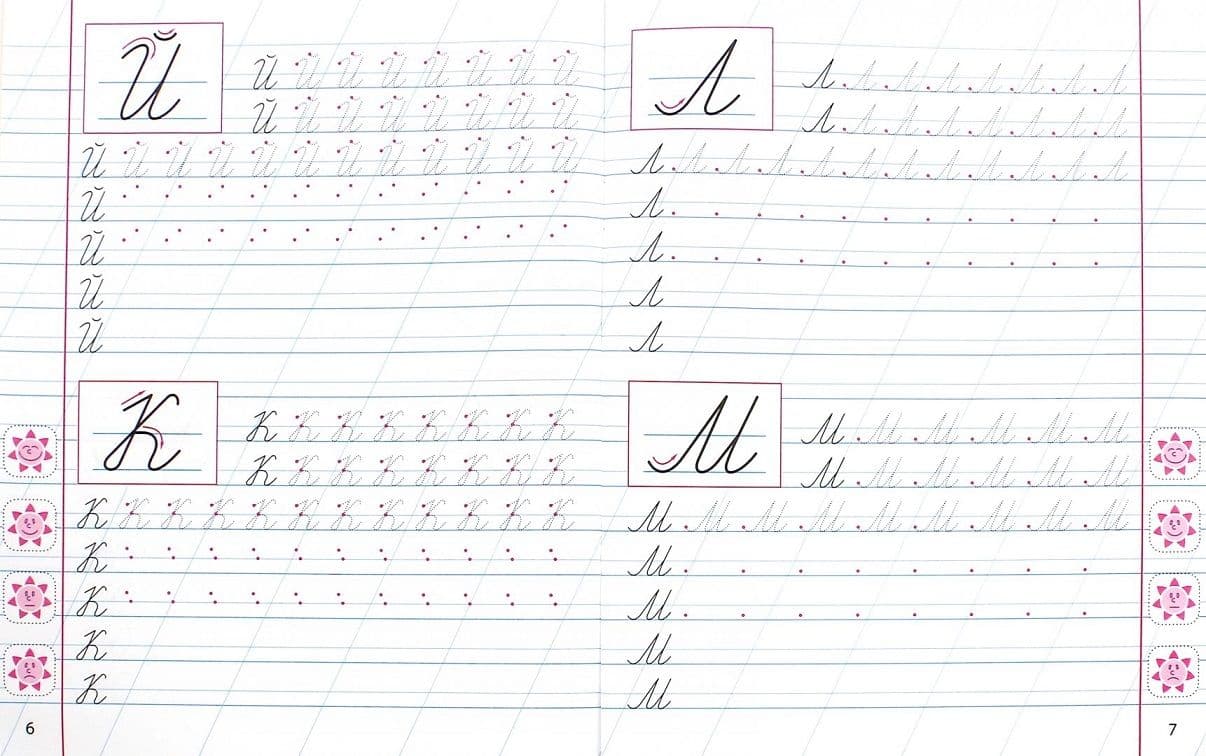 Й
Й Й Й Й Й Й Й Й
Й Й Й Й Й Й Й Й
Й Й Й Й Й Й Й Й Й Й Й Й
Й
Й
Й
Й
К
К К К К К К К К
К К К К К К К К
К К К К К К К К К К К К
К
К
К
К
6
Л
Л Л Л Л Л Л Л Л
Л Л Л Л Л Л Л Л
Л Л Л Л Л Л Л Л Л Л Л Л
Л
Л
Л
Л
М
М М М М М М
М М М М М М
М М М М М М М М М
М
М
М
М
7